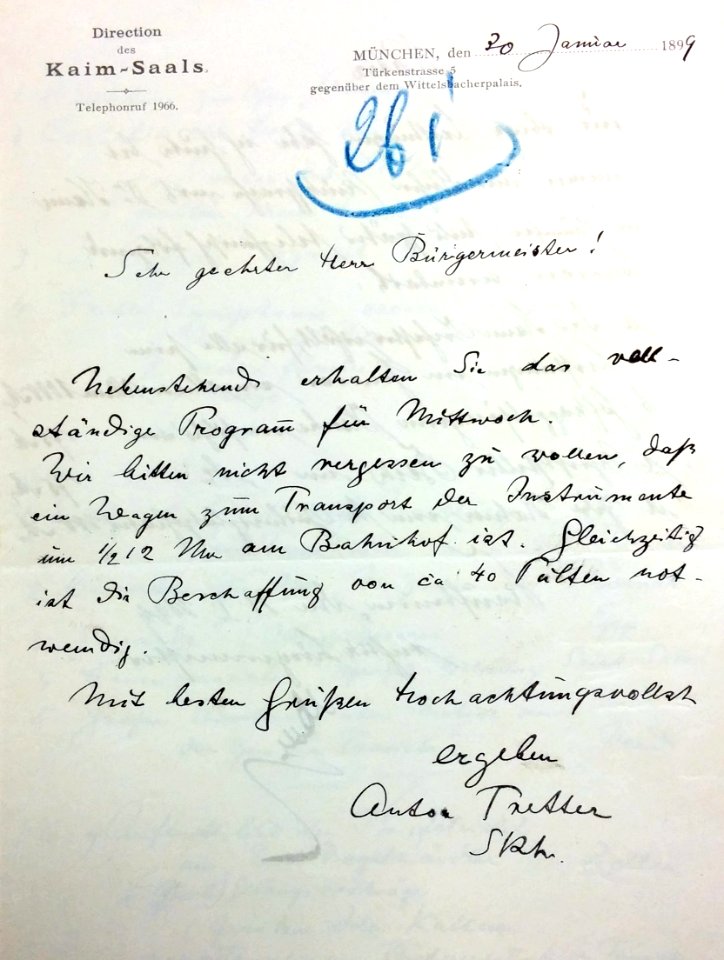 Direction
des
Kaim-Saals.
Telephonruf 1966.
MÜNCHEN, den 30 Januar 1899
Türkenstrasse 5
gegenüber dem Wittelsbacherpalais.
Sehr geehrter Herr Bürgermeister!
Nebenstehend erhalten Sie das voll-
ständige Program̅ für Mittwoch.
Wir bitten nicht vergessen zu wollen, daß
ein Wagen zum Transport der Instrumente
um 1/2 12 Uhr am Bahnhof ist. Gleichzeitig
ist die Beschaffung von ca 40 Pulten not-
wendig.
Mit besten Grüßen Hochachtungsvollst
ergeben
Anton Tretter